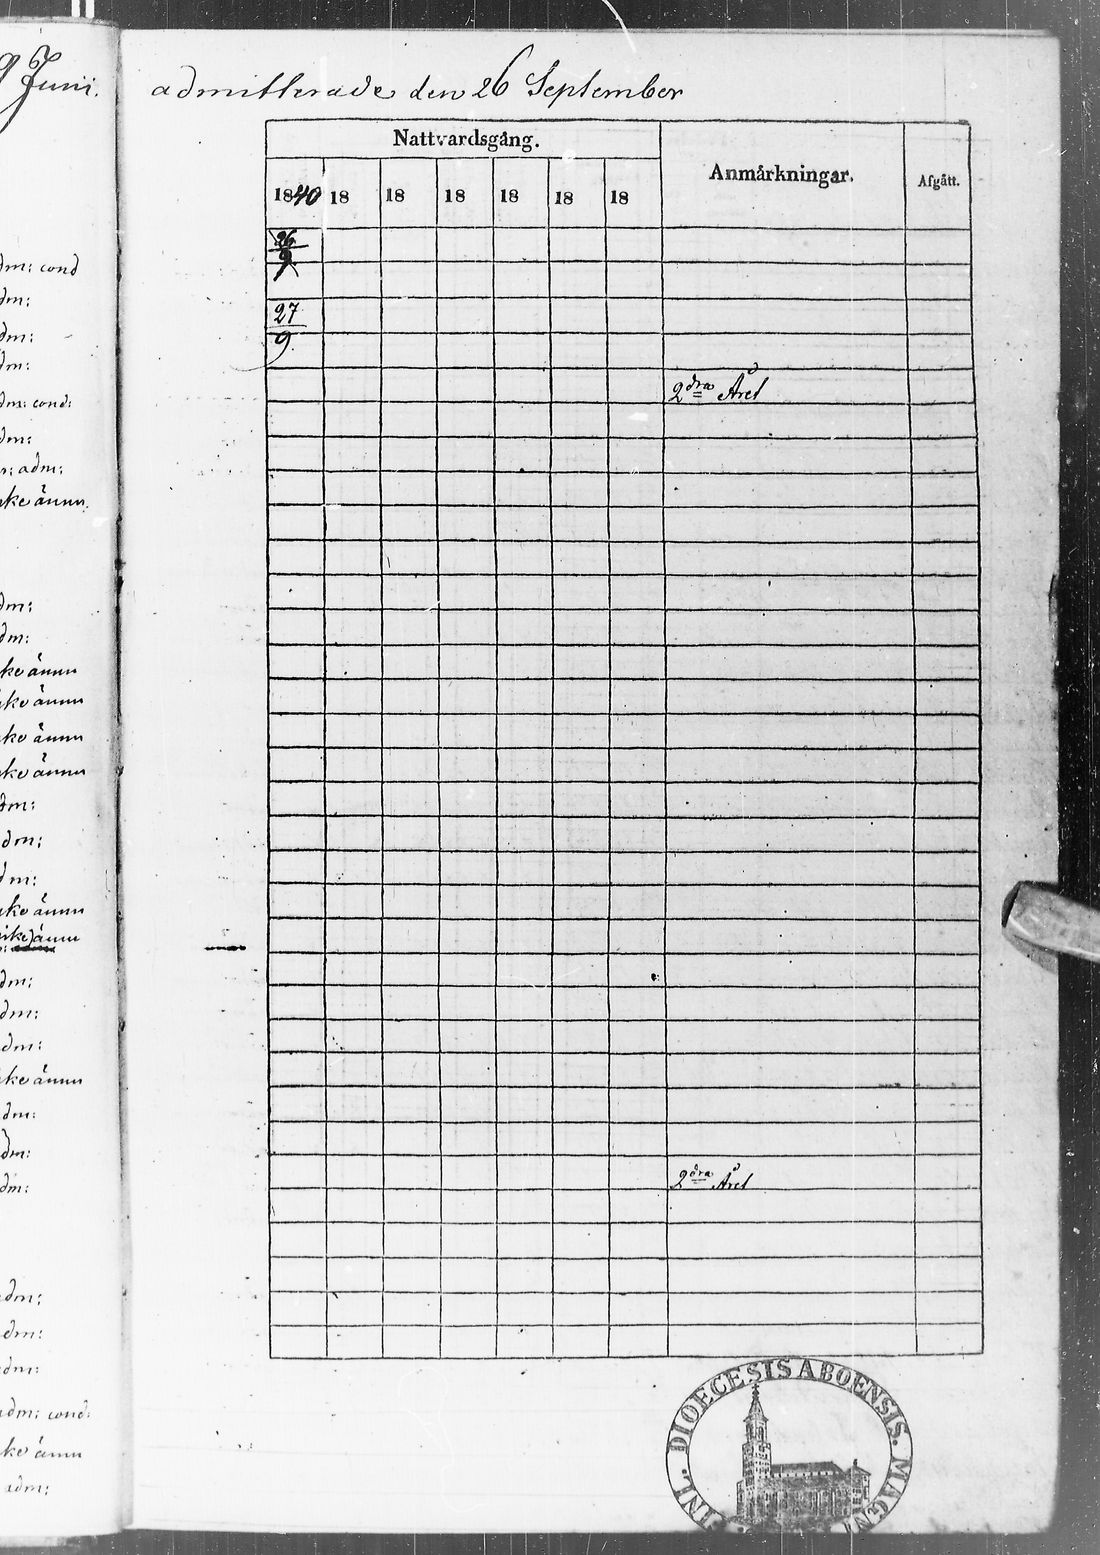 9 Juni.
dm: cond
dm:
dm:
dm:
dm: cond:
dm:
adm:
ke ännu.
dm:
dm:
ke ännu
ke ännu
ke ännu
ke ännu
dm:
dm:
dm:
ke ännu
ike) ännu
dm:
dm:
dm:
ke ännu
dm:
dm:
dm:
adm:
dm:
dm:
adm: cond:
ke ännu
adm:
admitterade den 26 September
Nattvardsgång. Anmärkningar. Afgått.
1840 18 18 18 18 18 18
26
9
27
9
2dra Året
2dra Året
DIOECESIS ABOENSIS. MAGNI
INL.